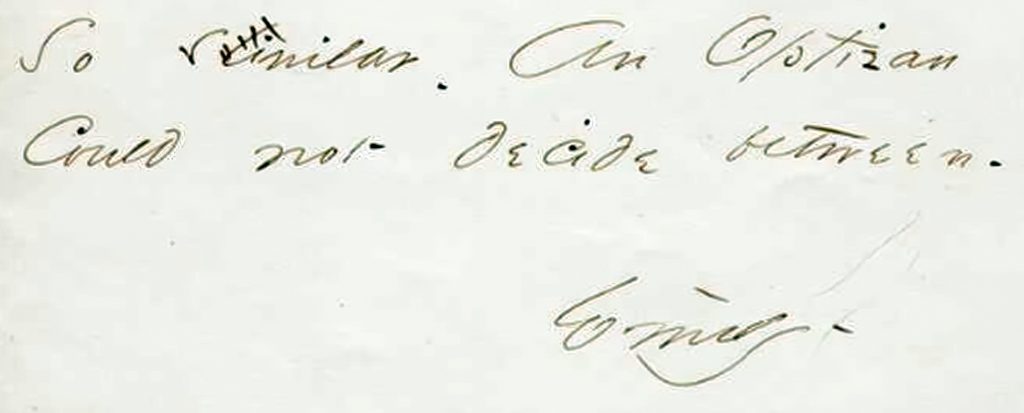 So similar. An Optizan
Could not decide between.
Emily -